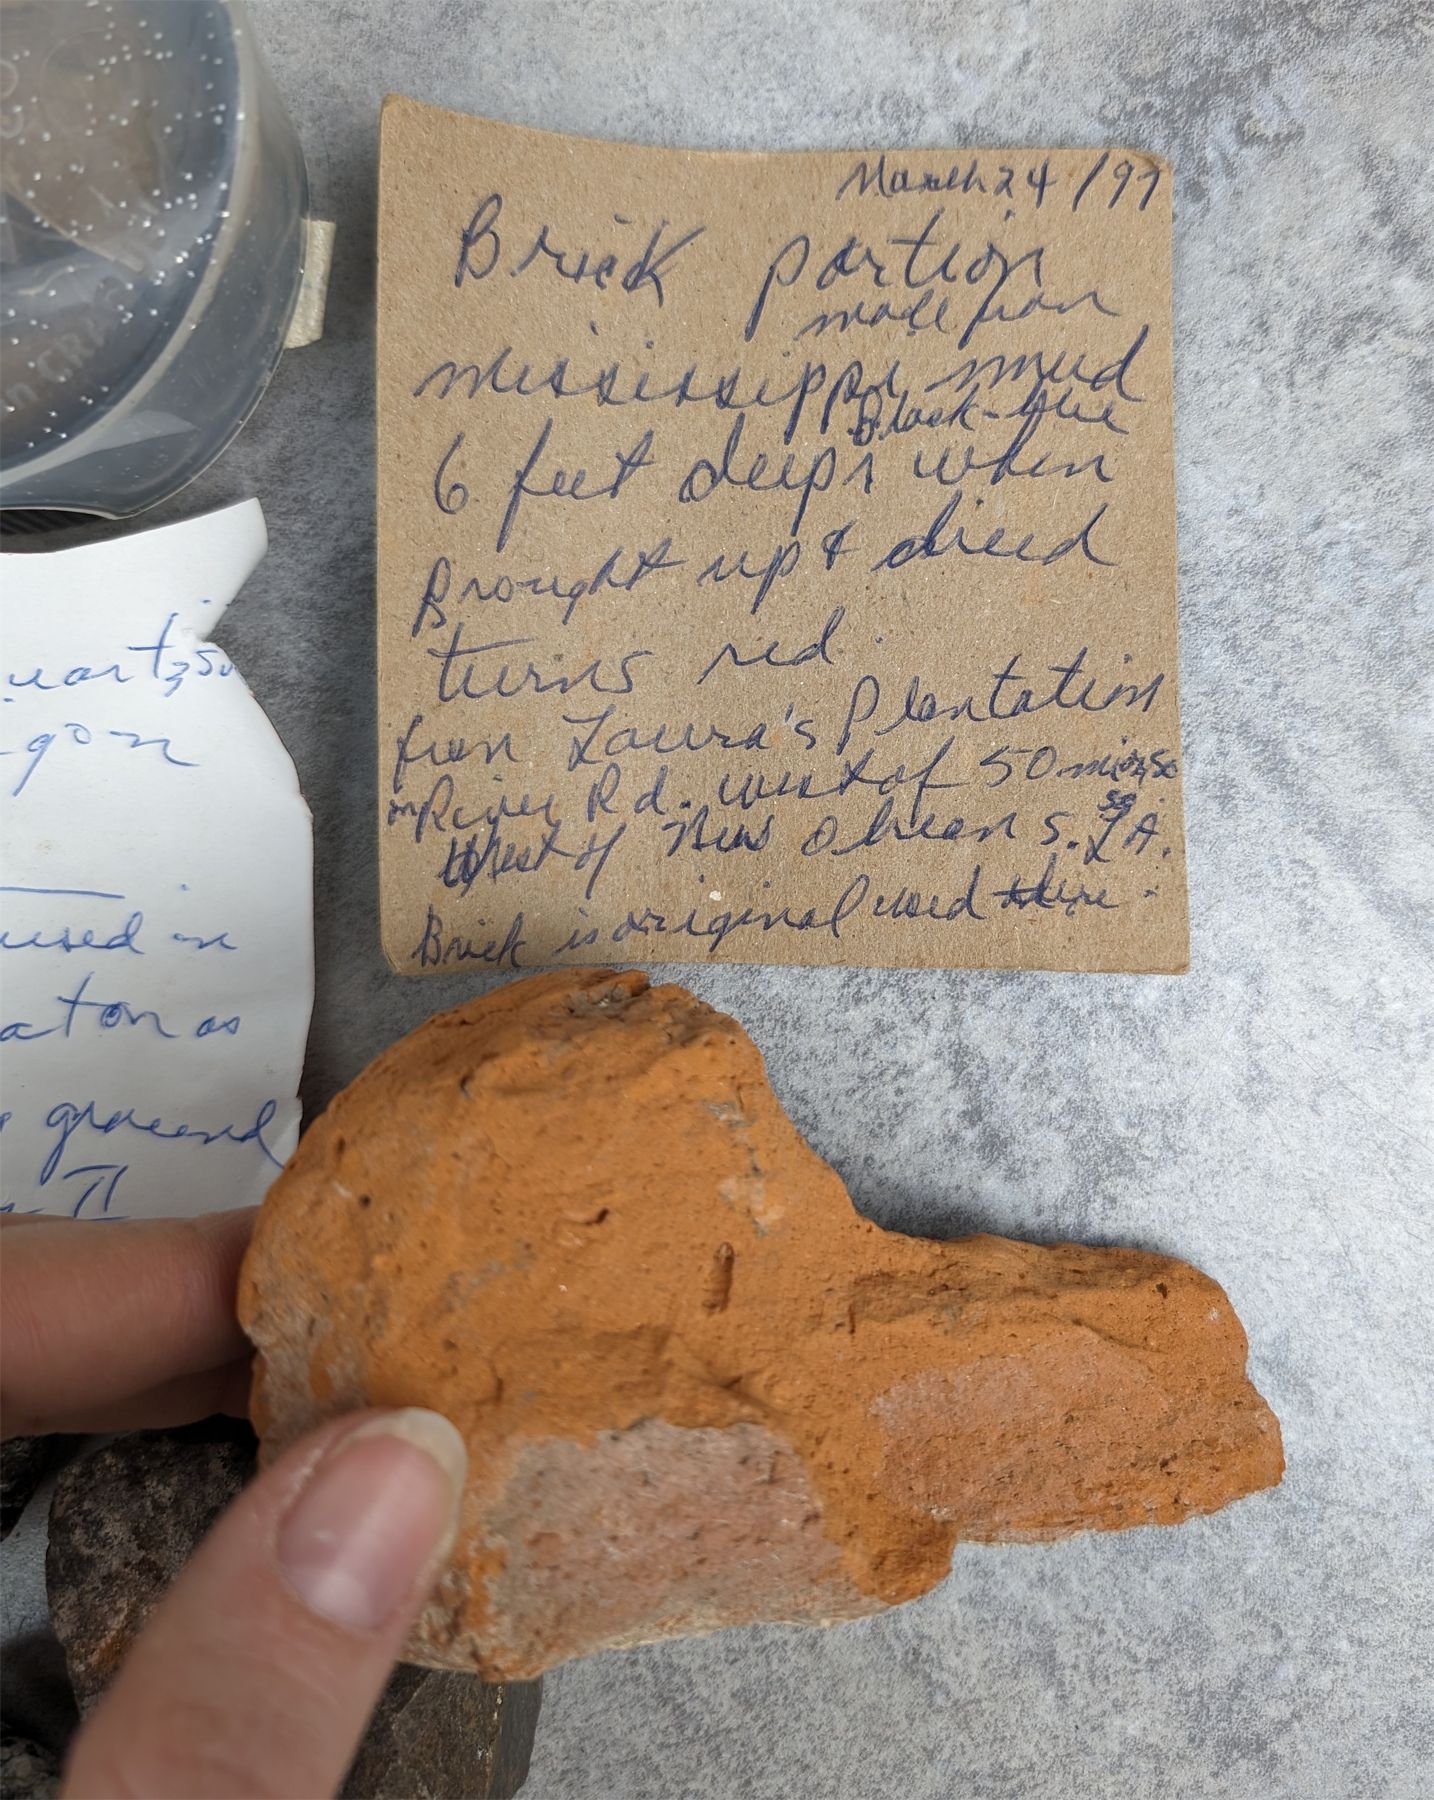 March 24/97
Brick portion
made from
mississippi mud
Black-blue
6 feet deep, when
Brought up & dried
turns red.
from Laura's Plantation
on River Rd. west of 50 mi
West of New Orleans. LA.
Brick is original used there.
used in
as
ground
II